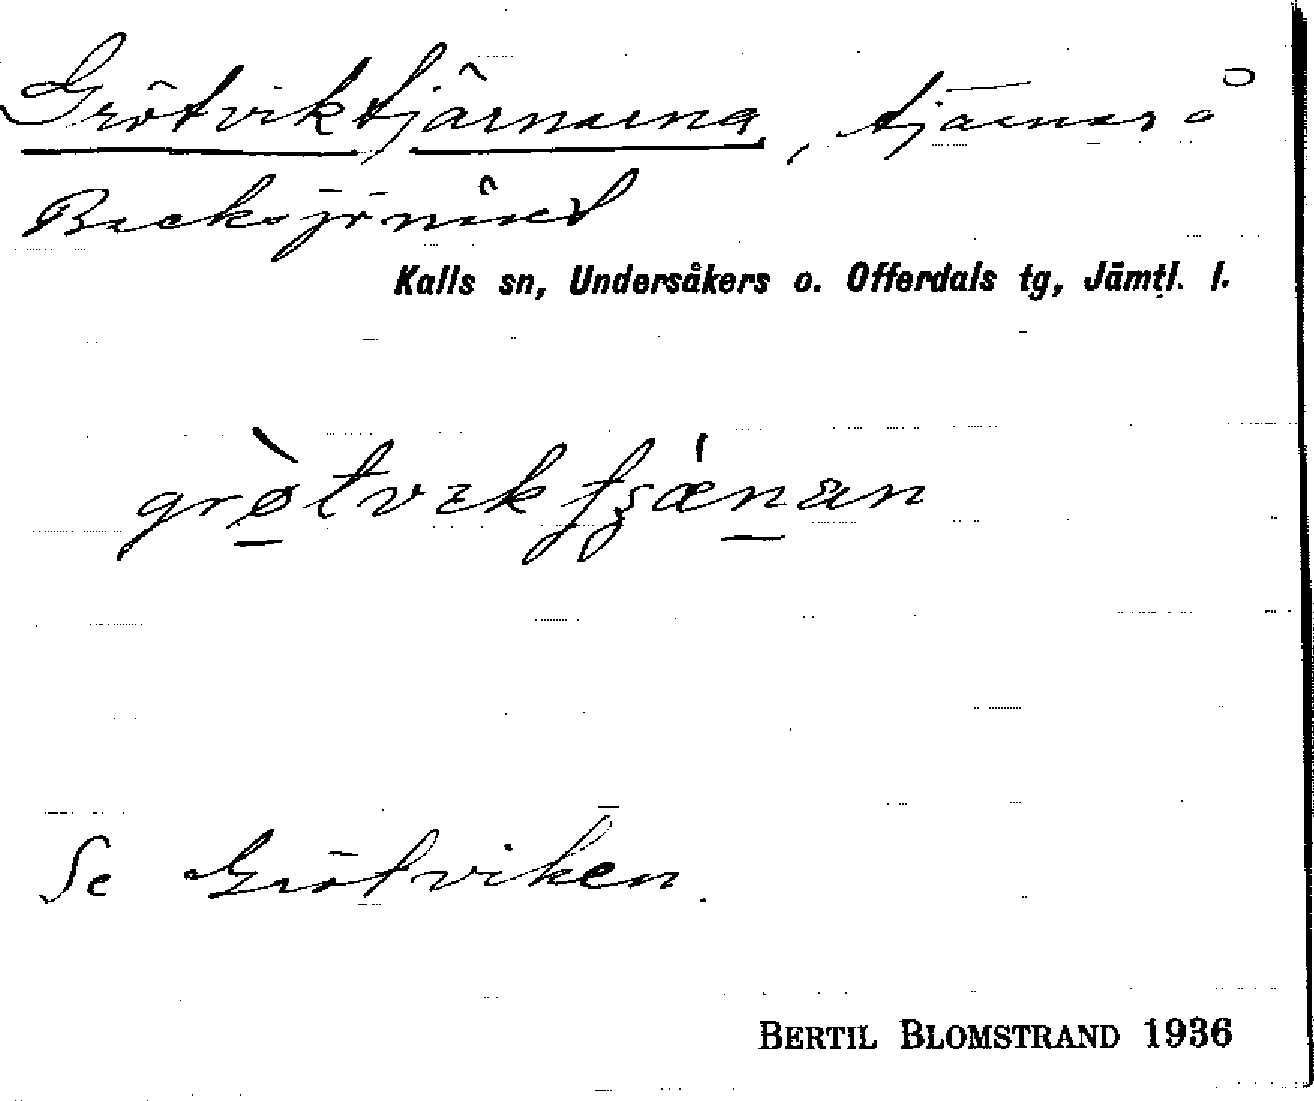 Grötviktjärnarna, tjärnar å
Backsjönäset
Kalls sn, Undersåkers o. Offerdals tg, Jämtl. l.
Se Grötviken.
BERTIL BLOMSTRAND 1936